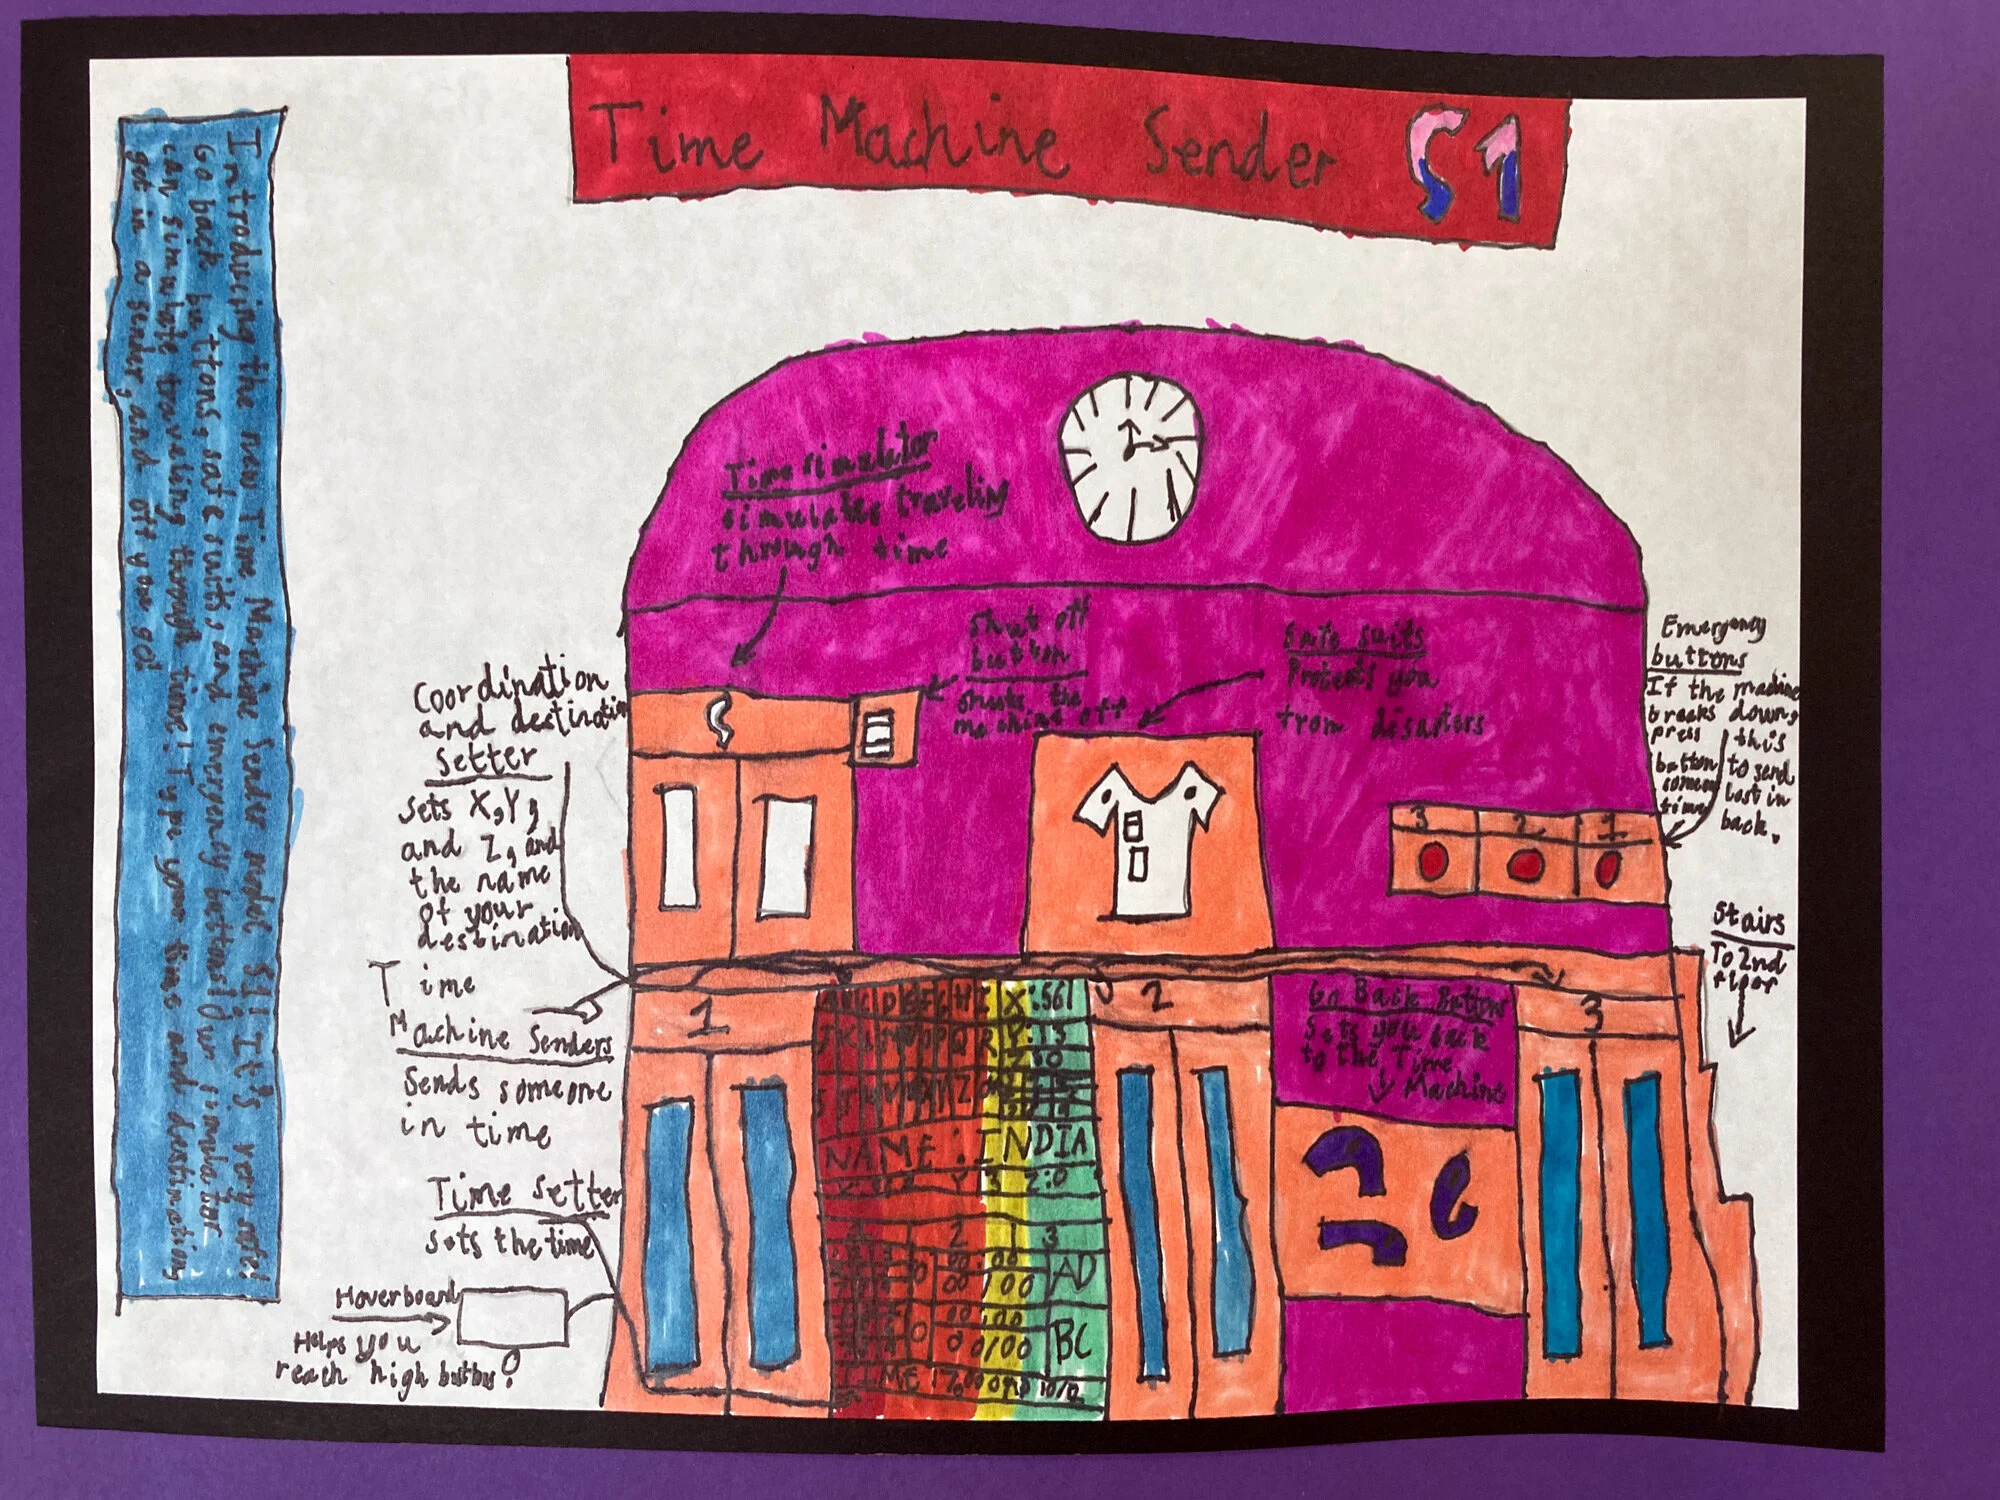 Time Machine Sender S1
Introducing the new Time Machine Sender model S1! It's very safe!
Go back buttons, safe suits, and emergency buttons! Our simulator
can simulate traveling through time! Type your time and destination,
get in a sender, and off you go!
Time simulator
simulates traveling
through time
Shut off
button
the
machine off
Safe suits
Protects you
from disasters
Emergency
buttons
If the machine
breaks down,
press this
button to send
someone lost in
time back.
Coordination
and destination
setter
sets X, Y,
and Z, and
the name
of your
destination
Time
Machine Senders
Sends someone
in time
Time setter
sets the time
Hoverboard
Helps you
reach high
Stairs
To 2nd
floor
S
3 2 1
1
2
3
Go Back Buttons
Sets you back
to the Time
Machine
X:561
Y:
Z:0
NAME: INDIA
Z:0
2 3
AD
BC